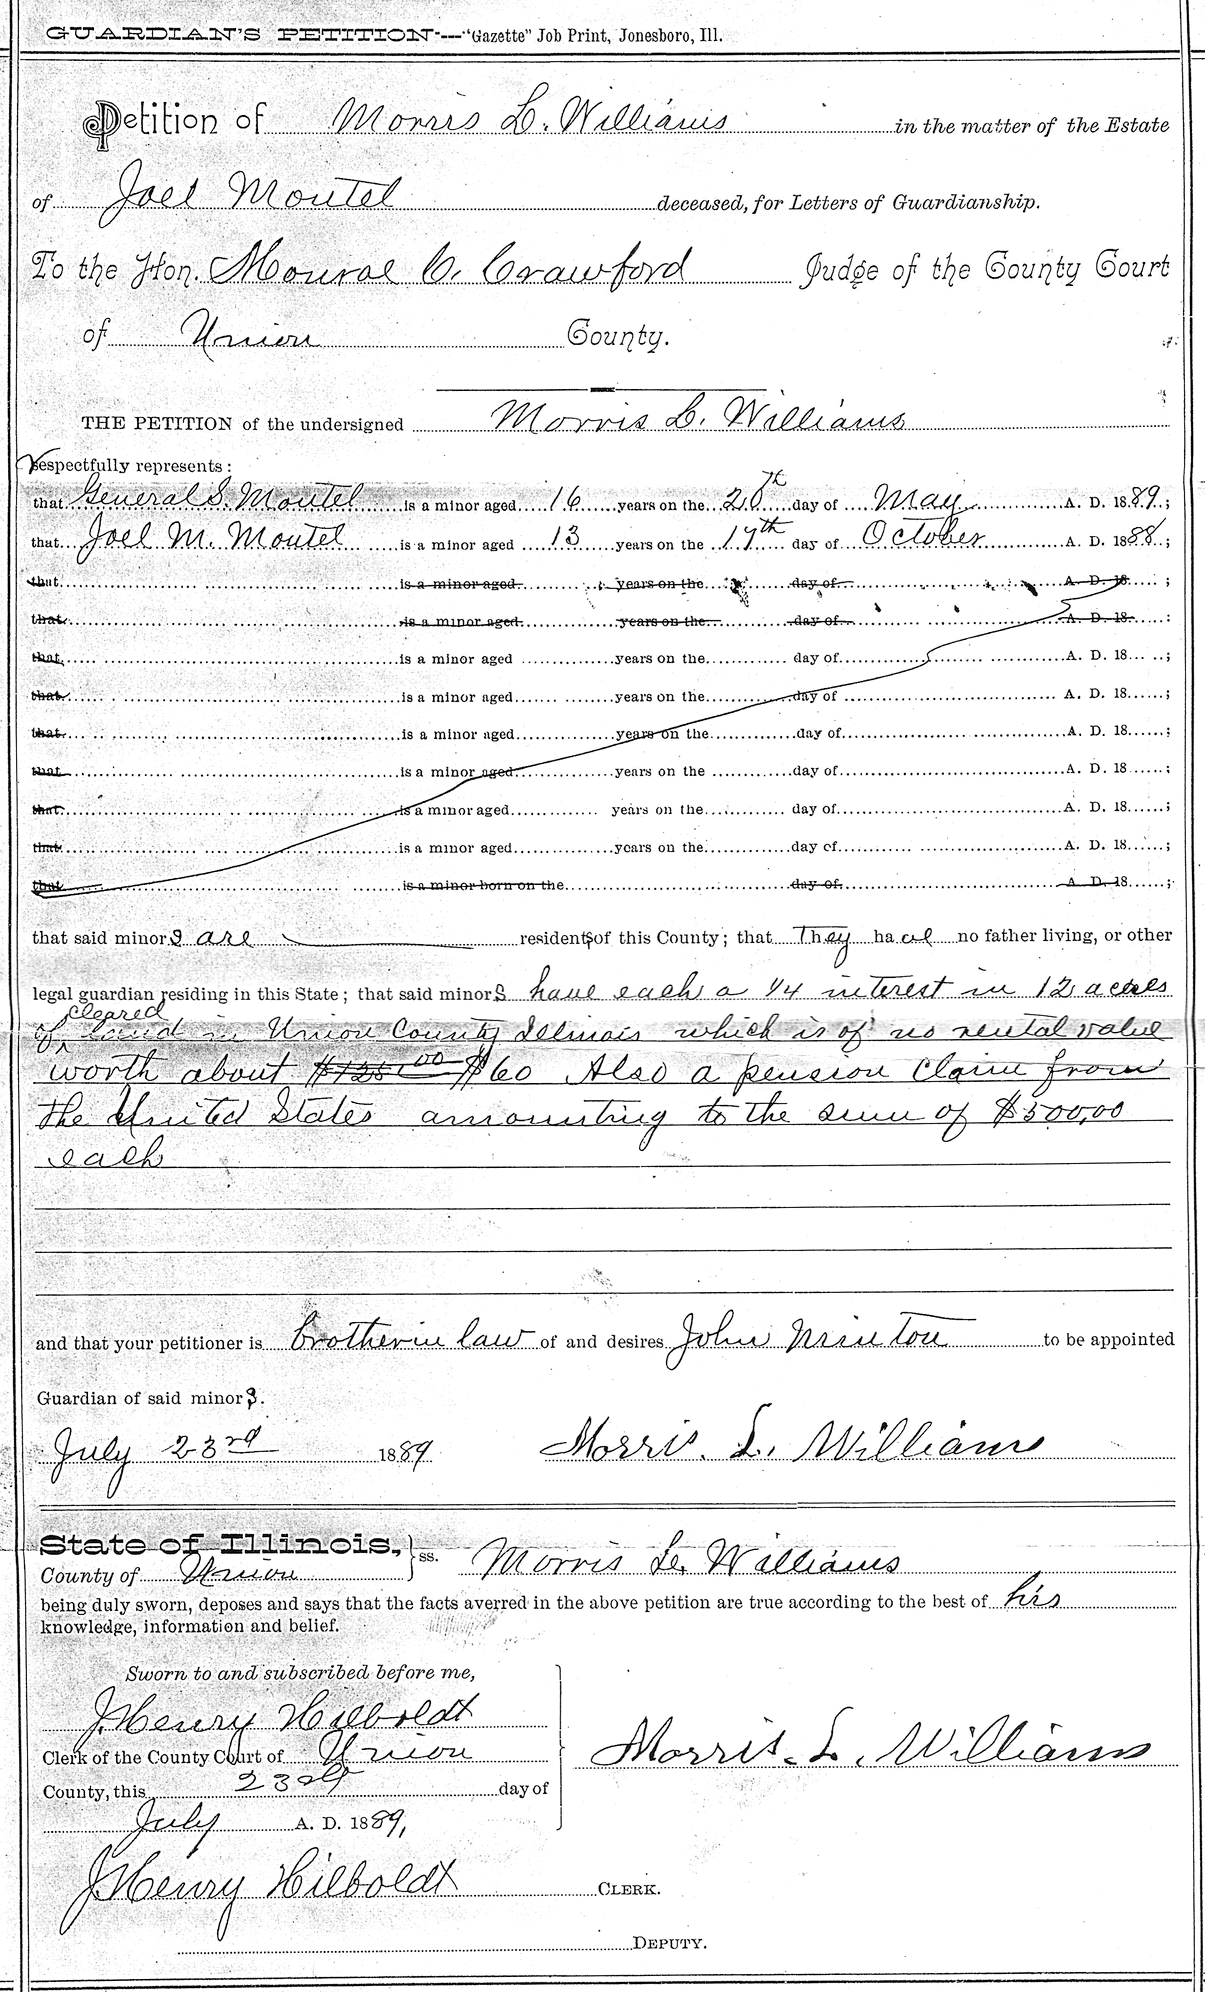 GUARDIAN'S PETITION---"Gazette" Job Print, Jonesboro, Ill.
Petition of Morris L. Williams in the matter of the Estate
of Joel Moutel deceased, for Letters of Guardianship.
To the Hon. Monroe C. Crawford Judge of the County Court
of Union County.
THE PETITION of the undersigned Morris L. Williams
respectfully represents:
that General S. Moutel is a minor aged 16 years on the 20th day of May A. D. 1889;
that Joel M. Moutel is a minor aged 13 years on the 17th day of October A. D. 1888;
that is a minor aged years on the day of A. D. 18 ;
that is a minor aged years on the day of A. D. 18 :
that is a minor aged years on the day of A. D. 18 ;
that is a minor aged years on the day of A. D. 18 ;
that is a minor aged years on the day of A. D. 18 ;
that is a minor aged years on the day of A. D. 18 ;
that is a minor aged years on the day of A. D. 18 ;
that is a minor aged years on the day of A. D. 18 ;
that is a minor born on the day of A. D. 18 ;
that said minors are residents of this County; that They have no father living, or other
legal guardian residing in this State; that said minors have each a 1/4 interest in 12 acres
of cleared land in Union County Illinois which is of no rental value
worth about $125.00 $60 Also a pension Claim from
the United States amounting to the sum of $500,00
each
and that your petitioner is brother in law of and desires John Minton to be appointed
Guardian of said minors.
July 23rd 1889 Morris. L. Williams
State of Illinois, } ss. Morris L. Williams
County of Union
being duly sworn, deposes and says that the facts averred in the above petition are true according to the best of his
knowledge, information and belief.
Sworn to and subscribed before me,
J Henry Hilboldt
Clerk of the County Court of Union
Morris. L. Williams
County, this 23rd day of
July A. D. 1889,
J Henry Hilboldt CLERK.
DEPUTY.